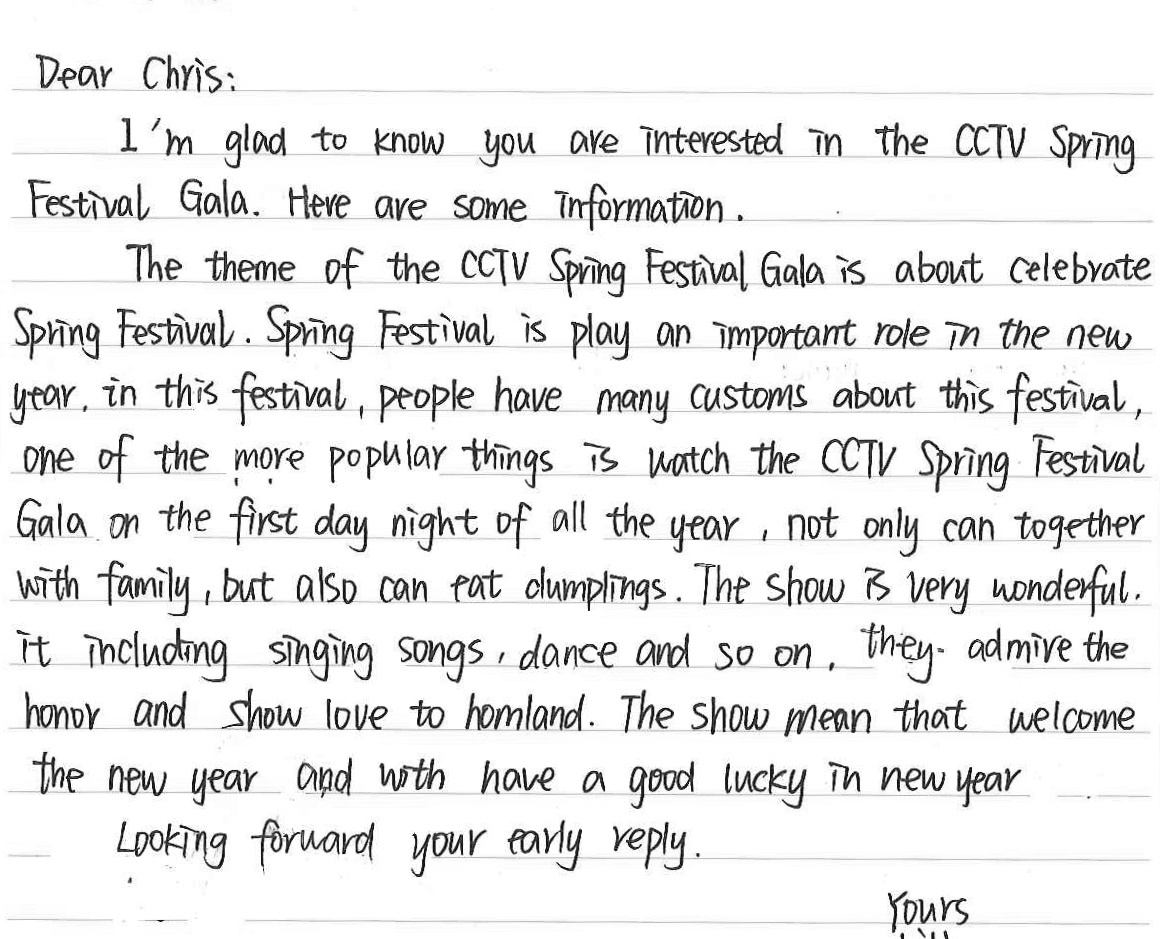 Dear Chris:
I'm glad to know you are interested in the CCTV Spring
Festival Gala. Here are some information.
The theme of the CCTV Spring Festival Gala is about celebrate
Spring Festival. Spring Festival is play an important role in the new
year. in this festival, people have many customs about this festival,
one of the more popular things is watch the CCTV Spring Festival
Gala on the first day night of all the year, not only can together
with family, but also can eat dumplings. The show is very wonderful.
it including singing songs, dance and so on, they admire the
honor and show love to homland. The show mean that welcome
the new year and with have a good lucky in new year
Looking forward your early reply.
Yours